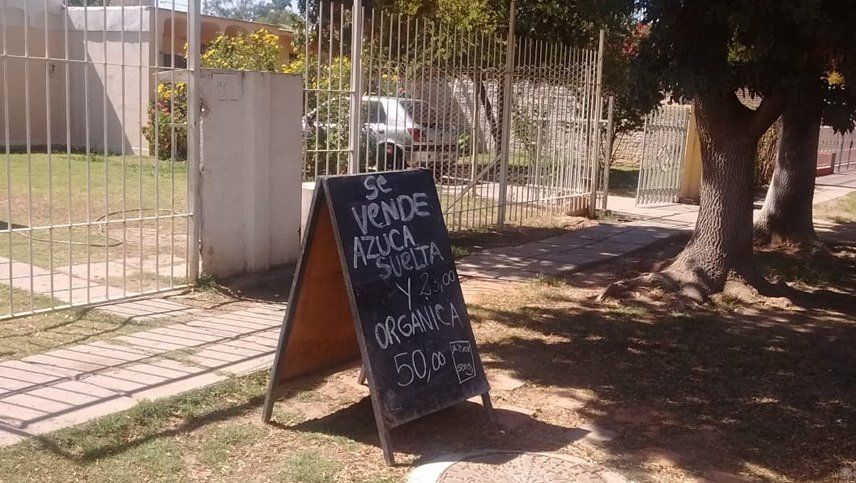 Se
VENDE
AZUCA
SUELTA
Y 23,00
ORGANICA
50,00
AZUCA
500g